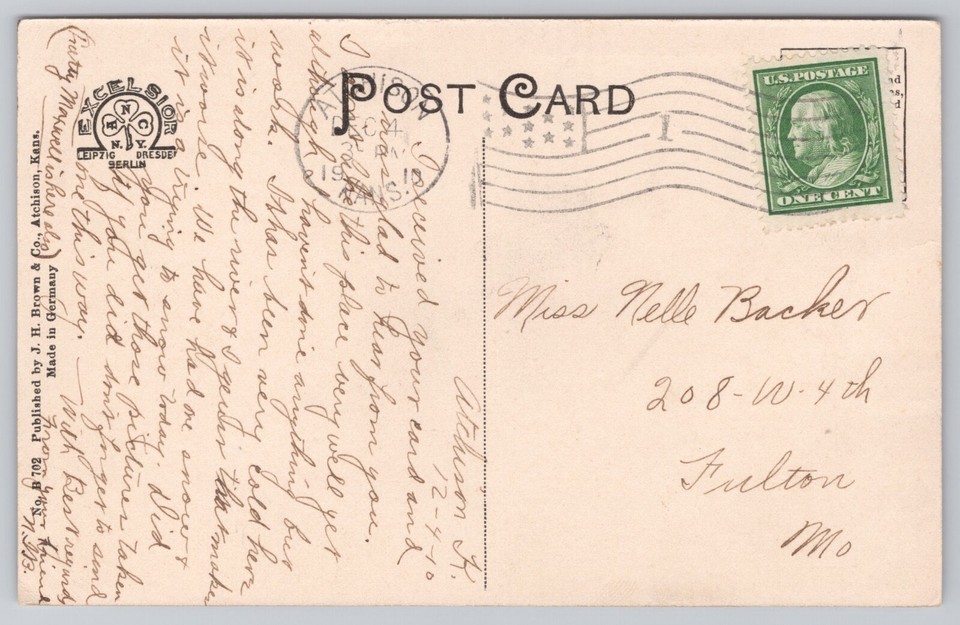 POST CARD
U.S. POSTAGE
ONE CENT
ATCHISON
DEC 4
1910
KANS.
1
EXCELSIOR
N.Y.
LEIPZIG DRESDEN
BERLIN
No. B 702 Published by J. H. Brown & Co., Atchison, Kans.
Made in Germany
Miss Nelle Backer
208-W-4th
Fulton
Mo
Atchison K.
12-4-10
I received your card and
was glad to hear from you.
I like this place very well yet
although I havint done anything but
work. It has been very cold here
it is along the river & I guess that makes
it worse. We have had one snow &
it is a trying to snow today. Did
you get those pictures taken
if you did don't forget to send
one this way. With Best regards
From your friend
N.B.